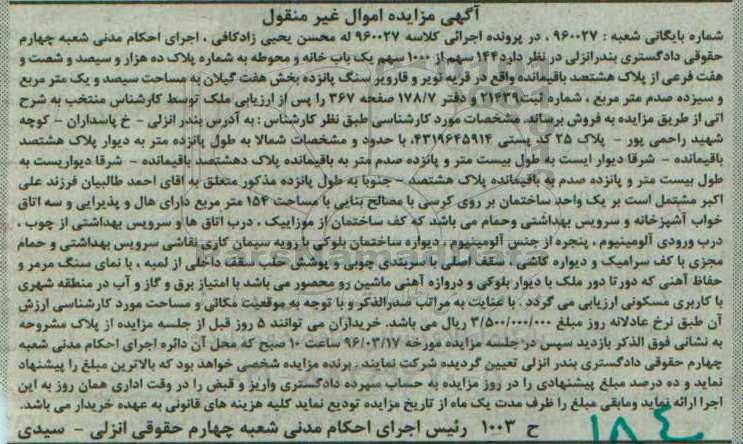 آگهی مزایده اموال غیر منقول
شماره بایگانی شعبه : ۹۶۰۰۲۷ ، در پرونده اجرائی کلاسه ۹۶۰۰۲۷ له محسن یحیی زادکافی ، اجرای احکام مدنی شعبه چهارم
حقوقی دادگستری بندرانزلی در نظر دارد ۱۴۴ سهم از ۱۰۰۰ سهم یک باب خانه و محوطه به شماره پلاک ده هزار و سیصد و شصت و
هفت فرعی از پلاک هشتصد باقیمانده واقع در قریه تویر و قارویر سنگ پانزده بخش هفت گیلان به مساحت سیصد و یک متر مربع
و سیزده صدم متر مربع ، شماره ثبت ۲۱۴۳۹ و دفتر ۱۷۸/۷ صفحه ۳۶۷ را پس از ارزیابی ملک توسط کارشناس منتخب به شرح
اتی از طریق مزایده به فروش برساند. مشخصات مورد کارشناسی طبق نظر کارشناس : به آدرس بندر انزلی - خ پاسداران - کوچه
شهید راحمی پور - پلاک ۲۵ کد پستی ۴۳۱۹۶۴۵۹۱۴، با حدود و مشخصات شمالا به طول پانزده متر به دیوار پلاک هشتصد
باقیمانده - شرقا دیوار ایست به طول بیست متر و پانزده صدم متر به باقیمانده پلاک دهشتصد باقیمانده - شرقا دیواریست به
طول بیست متر و پانزده صدم به باقیمانده پلاک هشتصد - جنوبا به طول پانزده مذکور متعلق به اقای احمد طالبیان فرزند علی
اکبر مشتمل است بر یک واحد ساختمان بر روی کرسی با مصالح بنایی با مساحت ۱۵۴ متر مربع دارای هال و پذیرایی و سه اتاق
خواب آشپزخانه و سرویس بهداشتی وحمام می باشد که کف ساختمان از موزاییک ، درب اتاق ها و سرویس بهداشتی از چوب ،
درب ورودی آلومینیوم ، پنجره از جنس آلومینیوم ، دیواره ساختمان بلوکی با رویه سیمان کاری نقاشی سرویس بهداشتی و حمام
مجزی با کف سرامیک و دیواره کاشی ، سقف اصلی با سربندی چوبی و پوشش حلب سقف داخلی از لمبه ، با نمای سنگ مرمر و
حفاظ آهنی که دور تا دور ملک با دیوار بلوکی و دروازه آهنی ماشین رو محصور می باشد با امتیاز برق و گاز و آب در منطقه شهری
با کاربری مسکونی ارزیابی می گردد . با عنایت به مراتب صدرالذکر و با توجه به موقعیت مکانی و مساحت مورد کارشناسی ارزش
آن طبق نرخ عادلانه روز مبلغ ۳/۵۰۰/۰۰۰/۰۰۰ ریال می باشد. خریداران می توانند ۵ روز قبل از جلسه مزایده از پلاک مشروحه
به نشانی فوق الذکر بازدید سپس در جلسه مزایده مورخه ۹۶/۰۳/۱۷ ساعت ۱۰ صبح که محل آن دائره اجرای احکام مدنی شعبه
چهارم حقوقی دادگستری بندر انزلی تعیین گردیده شرکت نمایند . برنده مزایده شخصی خواهد بود که بالاترین مبلغ را پیشنهاد
نماید و ده درصد مبلغ پیشنهادی را در روز مزایده به حساب سپرده دادگستری واریز و قبض را در وقت اداری همان روز به این
اجرا ارائه نماید ومابقی مبلغ را ظرف مدت یک ماه از تاریخ مزایده تودیع نماید کلیه هزینه های قانونی به عهده خریدار می باشد.
ح ۱۰۰۳ رئیس اجرای احکام مدنی شعبه چهارم حقوقی انزلی - سیدی
۱۸۴